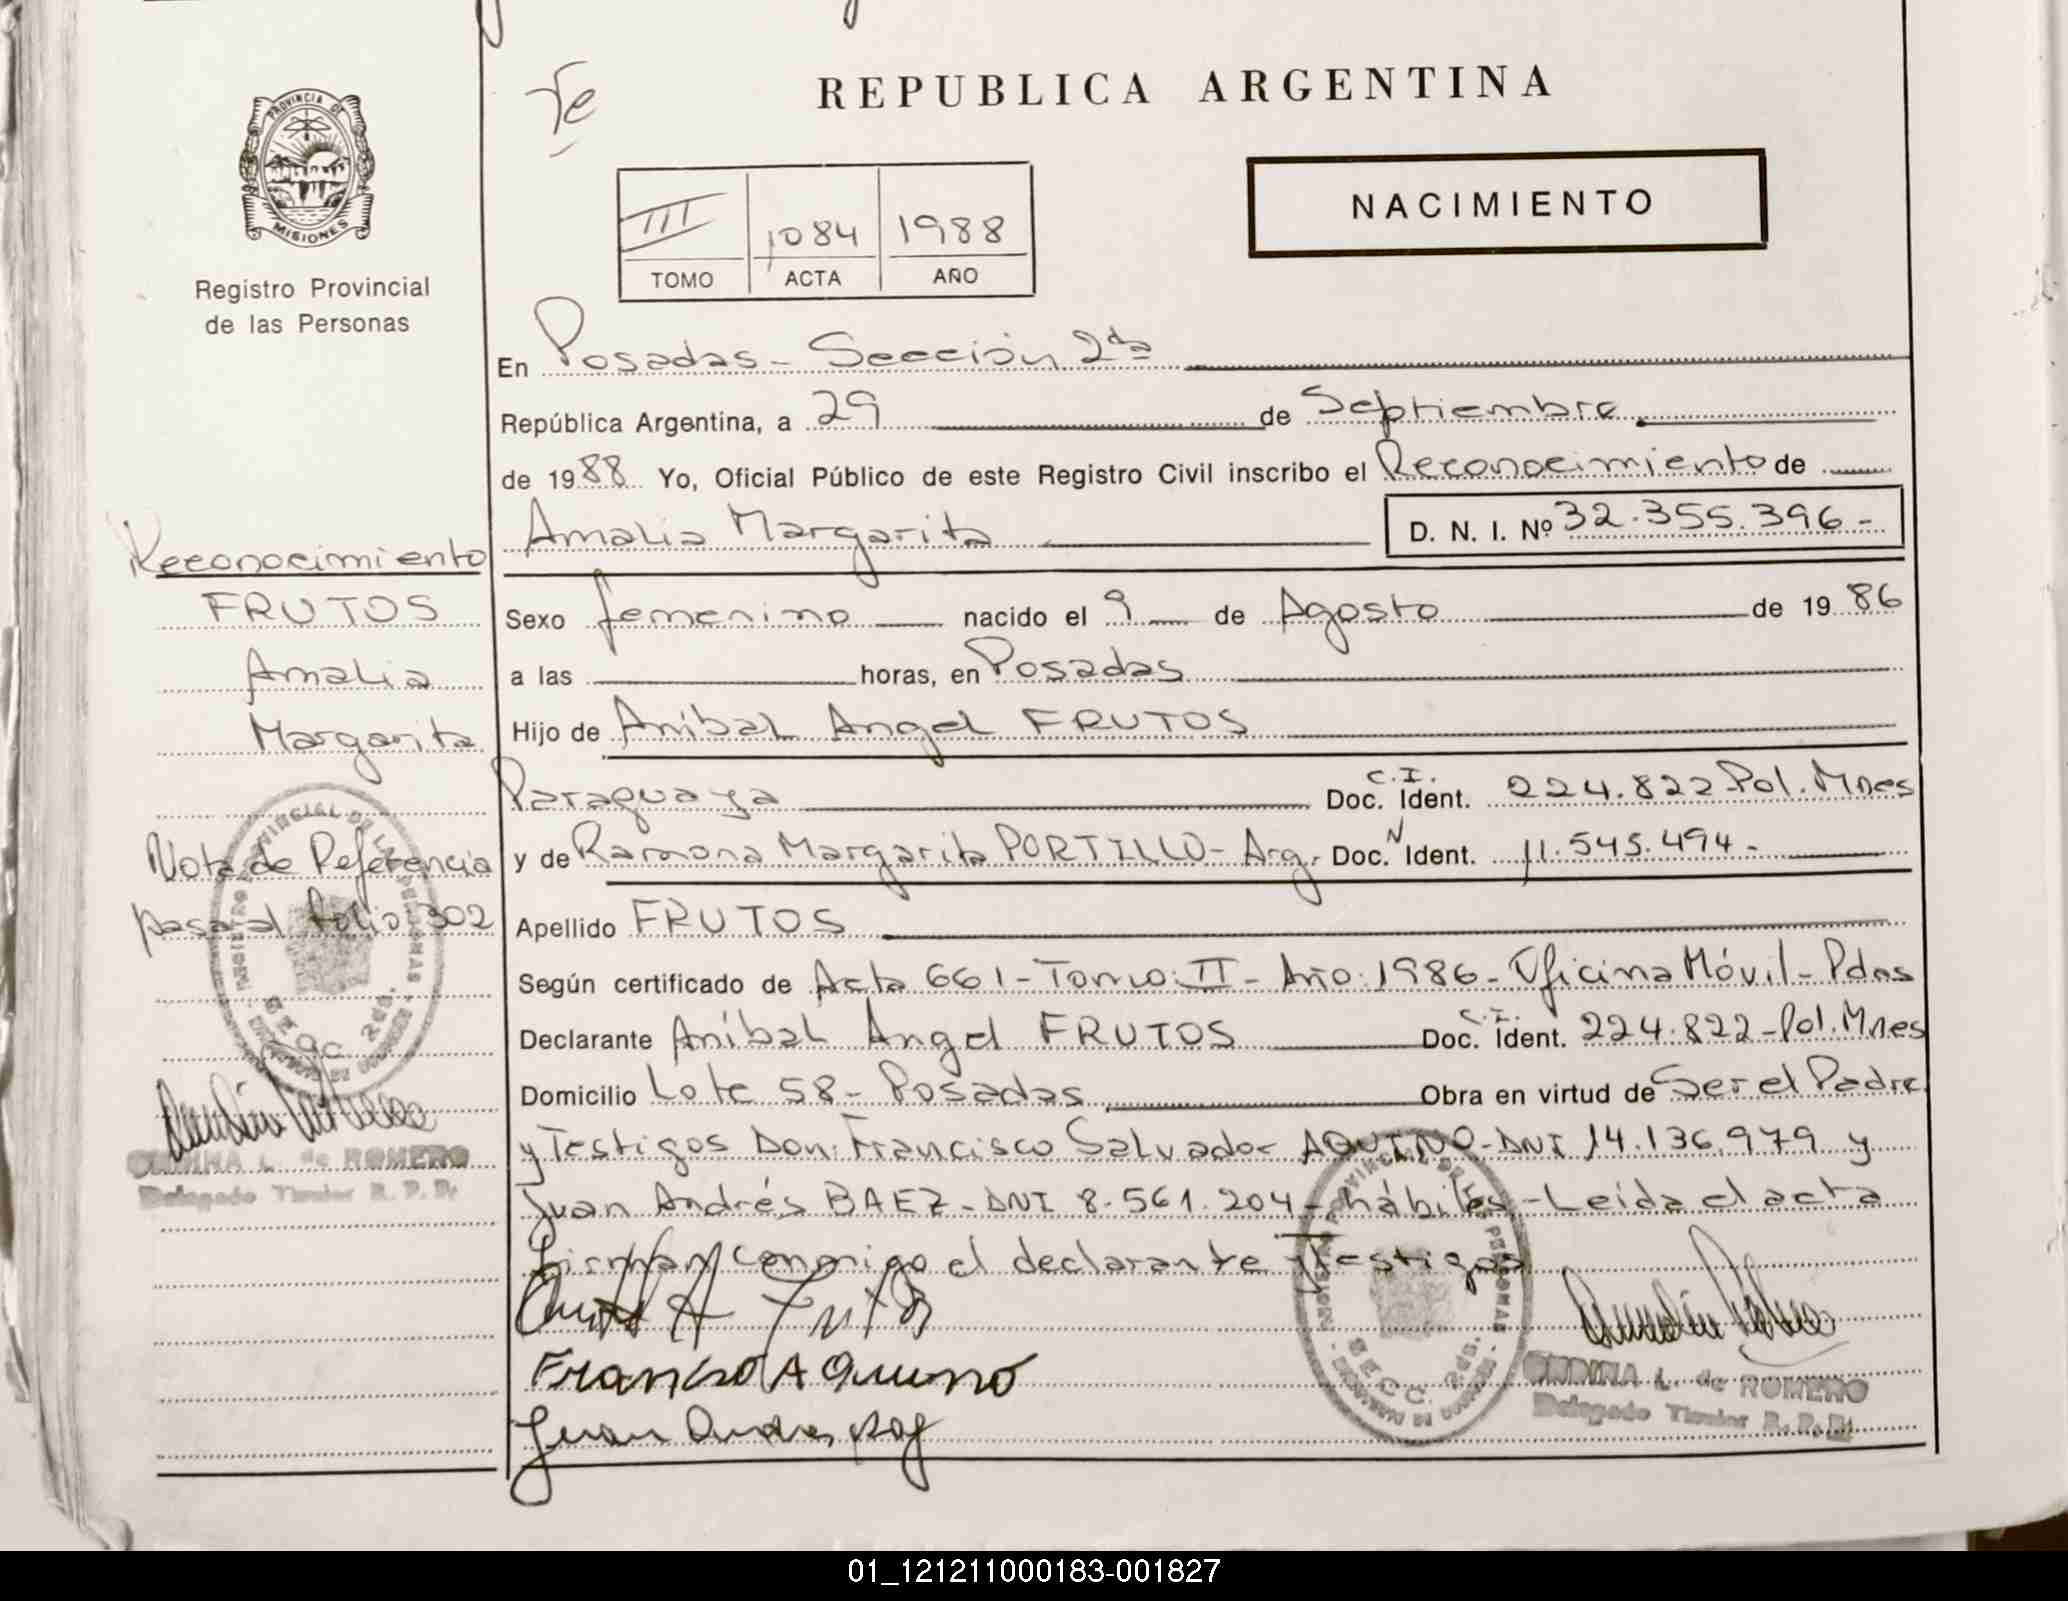 REPUBLICA ARGENTINA
NACIMIENTO
PROVINCIA DE
MISIONES
Registro Provincial
de las Personas
III 1084 1988
TOMO ACTA AÑO
En Posadas - Sección 2da
República Argentina, a 29 de Septiembre
de 1988 Yo, Oficial Público de este Registro Civil inscribo el Reconocimiento de
Amalia Margarita D. N. I. Nº 32.355.396-
Sexo femenino nacido el 9 de Agosto de 1986
a las horas, en Posadas
Hijo de Aníbal Angel FRUTOS
Paraguaya C.I. Doc. Ident. 224.822 Pol. Mnes
y de Ramona Margarita PORTILLO - Arg. Doc. N Ident. 11.545.494-
Apellido FRUTOS
Según certificado de Acta 661 - Tomo: II - Año: 1986 - Oficina Móvil - Pdas
Declarante Aníbal Angel FRUTOS C.I. Doc. Ident. 224.822 - Pol. Mnes
Domicilio Lote 58 - Posadas Obra en virtud de Ser el Padre
y Testigos Don: Francisco Salvador AQUINO - DNI 14.136.979 y
Juan Andrés BAEZ - DNI 8.561.204 - hábiles - Leída el acta
firman conmigo el declarante y Testigos
Francisco Aquino
Juan Andres
Reconocimiento
FRUTOS
Amalia
Margarita
Nota de Referencia
pasa al folio 302
REGISTRO PROVINCIAL DE LAS PERSONAS
SECC. 2da.
ONDINA L. de ROMERO
Delegado Titular R. P. P.
REGISTRO PROVINCIAL DE LAS PERSONAS
SECC. 2da.
ONDINA L. de ROMERO
Delegado Titular R. P. P.
01_121211000183-001827